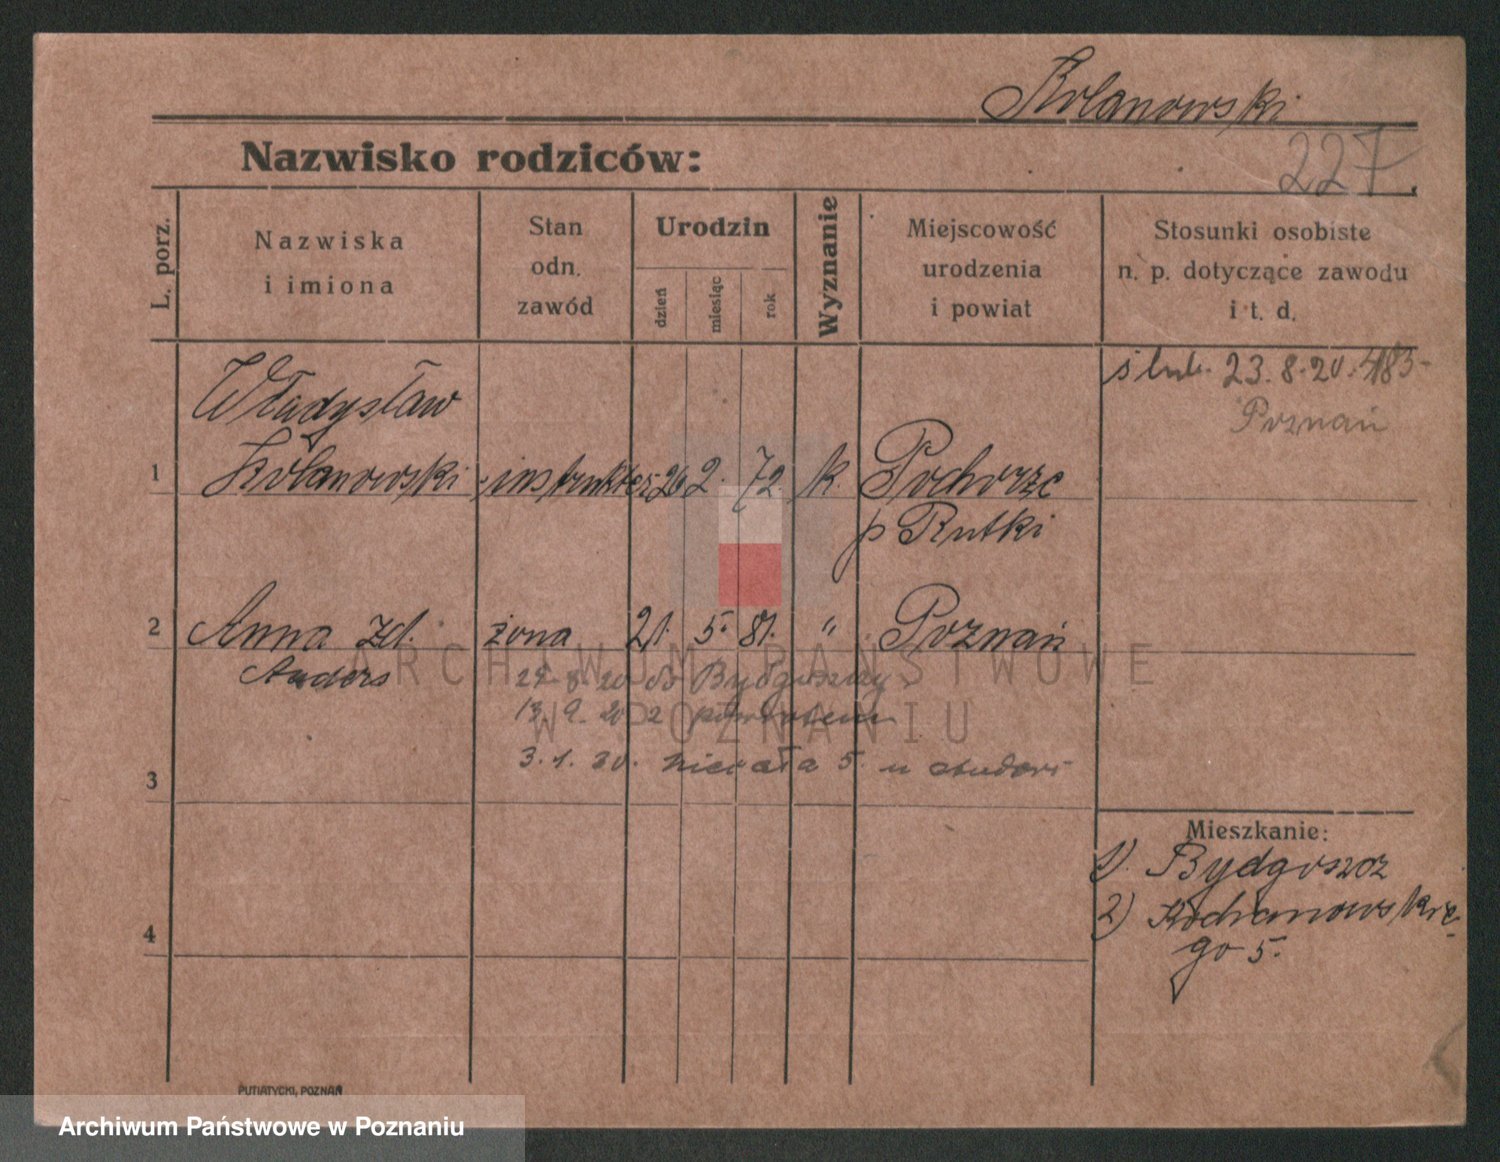 Kolanowski
Nazwisko rodziców:
227
L. porz.
Nazwiska
i imiona
Stan
odn.
zawód
Urodzin
dzień
miesiąc
rok
Wyznanie
Miejscowość
urodzenia
i powiat
Stosunki osobiste
n. p. dotyczące zawodu
i t. d.
ślub. 23.8.20.
Poznań
Władysław
1 Kolanowski instruktor 26 2. 72 k.
p Rutki
2 Anna zd. żona 21. 5. 81. " Poznań
Anders
20 do Bydgoszczy
13 9. 20 z powrotem
3. 1. 5. u
3
4
Mieszkanie:
1). Bydgoszcz
2) Kochanowskie
go 5.
PUTIATYCKI, POZNAŃ
ARCHIWUM PAŃSTWOWE
W POZNANIU
Archiwum Państwowe w Poznaniu